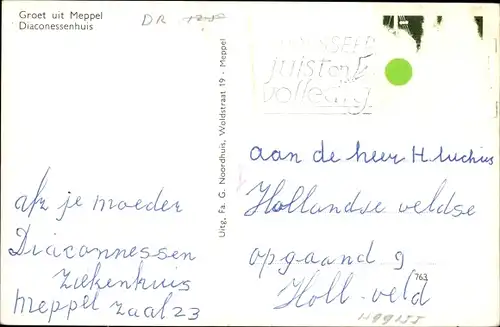 Groet uit Meppel
Diaconessenhuis
DR
Uitg. Fa. G. Noordhuis, Woldstraat 19 - Meppel
juist en
volledig
aan de heer H. Luchies
Hollandse veldse
opgaand 9
Holl-veld
763
afz je moeder
Diaconnessen
ziekenhuis
Meppel zaal 23